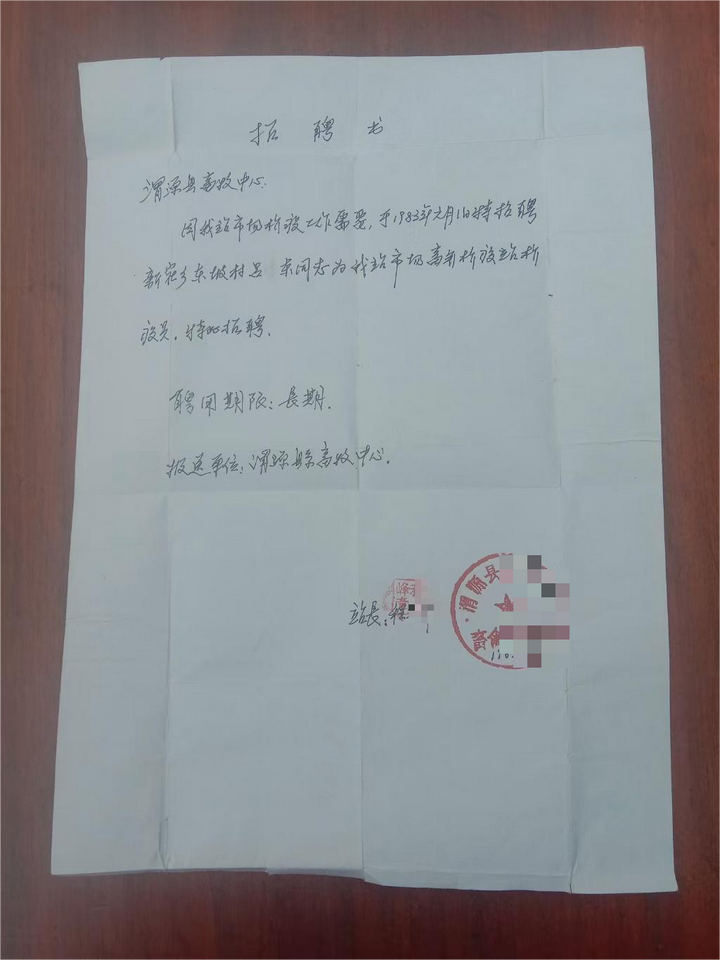 招聘书
渭源县畜牧中心:
因我站市场检疫工作需要,于1983年元月1日特招聘
新寨乡东坡村吕 东同志为我站市场畜禽检疫站检
疫员。特此招聘。
聘用期限:长期。
报送单位:渭源县畜牧中心。
站长:
渭源县